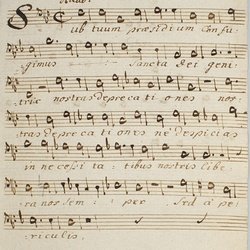 Sub tuum præsidium confu,
gimus sancta dei geni
trix nostras depreca ti ones nos
tras depreca ti ones ne despicias
in ne cessi ta: tibus nostris libe
ra nos sem: per sed a pe:
riculis.